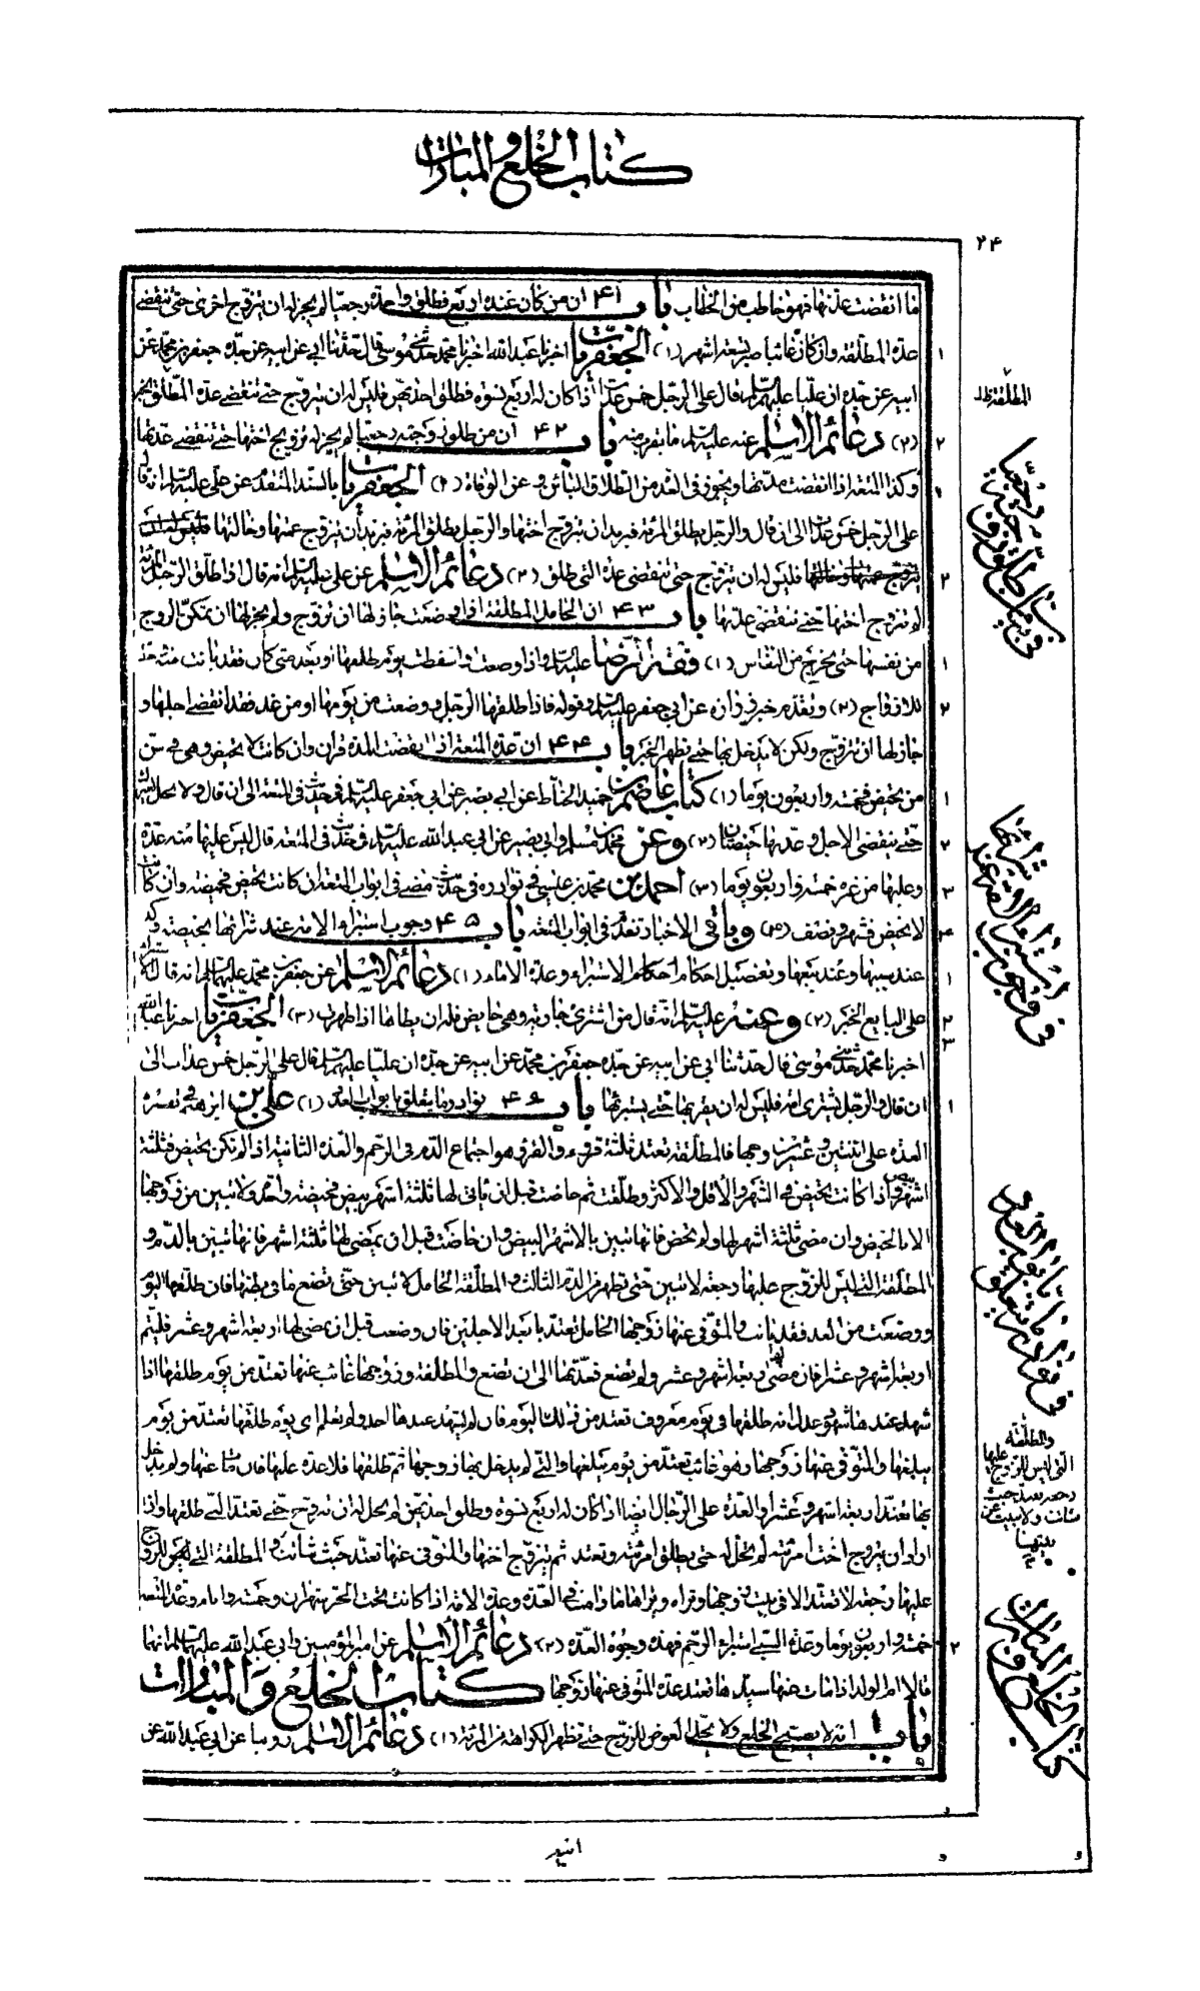 كتاب الخلع والمبارات
٢۴
فاذا انقضت عدتها فهو خاطب من الخطاب باب ۴١ ان من كان عنده اربع فطلق واحدة رجعيا لم يجز له ان يتزوج اخرى حتى تنقضى
عدة المطلقة وان كان غائبا صبر تسعة اشهر (١) الجعفريات اخبرنا عبد الله اخبرنا محمد حدثنى موسى قال حدثنا ابى عن ابيه عن جده جعفر بن محمد عن
ابيه عن جده ان عليا عليهم السلام قال على الرجل خمس عدات اذا كان له اربع نسوة فطلق احديهن فليس له ان يتزوج حتى تنقضى عدة المطلقة
(٢) دعائم الاسلام عنه عليه السلام ما يقرب منه باب ۴٢ ان من طلق زوجته رجعيا لم يجز له تزويج اختها حتى تنقضى عدتها
وكذا المتعة اذا انقضت مدتها ويجوز فى العدة من الطلاق البائن وعن الوفاة (١) الجعفريات بالسند المتقدم عن على عليه السلام انه قال
على الرجل خمس عدات الى ان قال والرجل يطلق المرئة فيريد ان يتزوج اختها والرجل يطلق المرئة فيريد ان يتزوج عمتها وخالتها
فليس له ان يتزوج حتى تنقضى عدة التى طلق (٢) دعائم الاسلام عن على عليه السلام انه قال اذا طلق الرجل المرئة
لم يتزوج اختها حتى تنقضى عدتها باب ۴٣ ان الحامل المطلقة اذا وضعت جاز لها ان تزوج ولم يجز لها ان تمكن الزوج
من نفسها حتى تخرج من النفاس (١) فقه الرضا عليه السلام واذا وضعت او اسقطت يوم طلقها او بعد متى كان فقد بانت منه وحلت
للازواج (٢) وتقدم خبر زرارة عن ابى جعفر عليه السلام وقوله فاذا طلقها الرجل ووضعت من يومها او من غد فقد انقضى اجلها و
جاز لها ان تتزوج ولكن لا يدخل بها حتى تطهر الخبر باب ۴۴ ان عدة المتعة اذا انقضت المدة قرآن وان كانت لا تحيض وهى فى سن
من تحيض فخمسة واربعون يوما (١) كتاب عاصم بن حميد الحناط عن ابى بصير عن ابى جعفر عليه السلام فى حديث فى المتعة الى ان قال ولا يحل لغيرك
حتى ينقضى الاجل وعدتها حيضتان (٢) وعن محمد بن مسلم وابى بصير عن ابى عبد الله عليه السلام فى حديث فى المتعة قال ليس عليها منه عدة
وعليها من غيره خمسة واربعون يوما (٣) احمد بن محمد بن عيسى فى نوادره فى حديث مضى فى ابواب المتعة ان كانت تحيض فحيضة وان كانت
لا تحيض فشهر ونصف (۴) وباقى الاخبار تقدم فى ابواب المتعة باب ۴۵ وجوب استبراء الامة عند شرائها بحيضة وكذا
عند سبيها وعند بيعها وتفصيل احكام الاستبراء وعدة الاماء (١) دعائم الاسلام عن جعفر بن محمد عليهما السلام انه قال الاستبراء
على البايع الخبر (٢) وعنه عليه السلام انه قال من اشترى جارية وهى حايض فله ان يطاها اذا طهرت (٣) الجعفريات اخبرنا عبد الله
اخبرنا محمد حدثنى موسى قال حدثنا ابى عن ابيه عن جده جعفر بن محمد عن ابيه عن جده ان عليا عليهم السلام قال على الرجل خمس عدات الى
ان قال والرجل يشترى امة فليس له ان يقربها حتى يستبرئها باب ۴۶ نوادر ما يتعلق بابواب العدد (١) على بن ابراهيم فى تفسيره
العدة على اثنتين وعشرين وجها فالمطلقة تعتد ثلثة قروء والقرؤ هو اجتماع الدم فى الرحم والعدة الثانية اذا لم تكن تحيض فثلثة
اشهر بيض واذا كانت تحيض فى الشهر والاقل والاكثر وطلقت ثم حاضت قبل ان ياتى لها ثلثة اشهر بيض حيضة واحدة ولا تبين من زوجها
الا بالحيض وان مضى ثلثة اشهر لها ولم تحض فانها تبين بالاشهر البيض وان حاضت قبل ان يمضى لها ثلثة اشهر فانها تبين بالدم و
المطلقة التى ليس للزوج عليها رجعة لا تبين حتى تطهر من الدم الثالث والمطلقة الحامل لا تبين حتى تضع ما فى بطنها فان طلقها اليوم
ووضعت من الغد فقد بانت والمتوفى عنها زوجها الحامل تعتد بابعد الاجلين فان وضعت قبل ان يمضى لها اربعة اشهر وعشر فليتم
اربعة اشهر وعشرا فان مضى لها اربعة اشهر وعشر ولم تضع فعدتها الى ان تضع والمطلقة وزوجها غائب عنها تعتد من يوم طلقها اذا
شهد عندها شهود عدل انه طلقها فى يوم معروف تعتد من ذلك اليوم فان لم يشهد عندها احد ولم تعلم اى يوم طلقها تعتد من يوم
يبلغها والمتوفى عنها زوجها وهو غائب تعتد من يوم يبلغها والتى لم يدخل بها زوجها ثم طلقها فلا عدة عليها فان مات عنها ولم يدخل
بها تعتد اربعة اشهر وعشرا والعدة على الرجال ايضا اذا كان له اربع نسوة وطلق احديهن لم يحل له ان يتزوج حتى تعتد التى طلقها واذا
اراد ان يتزوج اخت امرئته لم يحل له حتى يطلق امرئته وتعتد ثم يتزوج اختها والمتوفى عنها تعتد حيث شائت والمطلقة التى ليس للزوج
عليها رجعة لا تعتد الا فى بيت زوجها وتراه ويراها ما دامت فى العدة وعدة الامة اذا كانت تحت الحر شهران وخمسة ايام وعدة المتعة
خمسة واربعون يوما وعدة السبى استبراء الرحم فهذه وجوه العدة (٢) دعائم الاسلام عن امير المؤمنين وابى عبد الله عليهما السلام انهما
قالا ام الولد اذا مات عنها سيدها تعتد عدة المتوفى عنها زوجها كتاب الخلع والمبارات
باب ١ انه لا يصح الخلع ولا يحل العوض للزوج حتى تظهر الكراهة من المرئة (١) دعائم الاسلام روينا عن ابى عبد الله عن
المطلقة
والمطلقة
التى ليس للزوج عليها
رجعة تعتد حيث
شائت ولا تبيت عن
بيتها
كتاب الخلع والمبارات